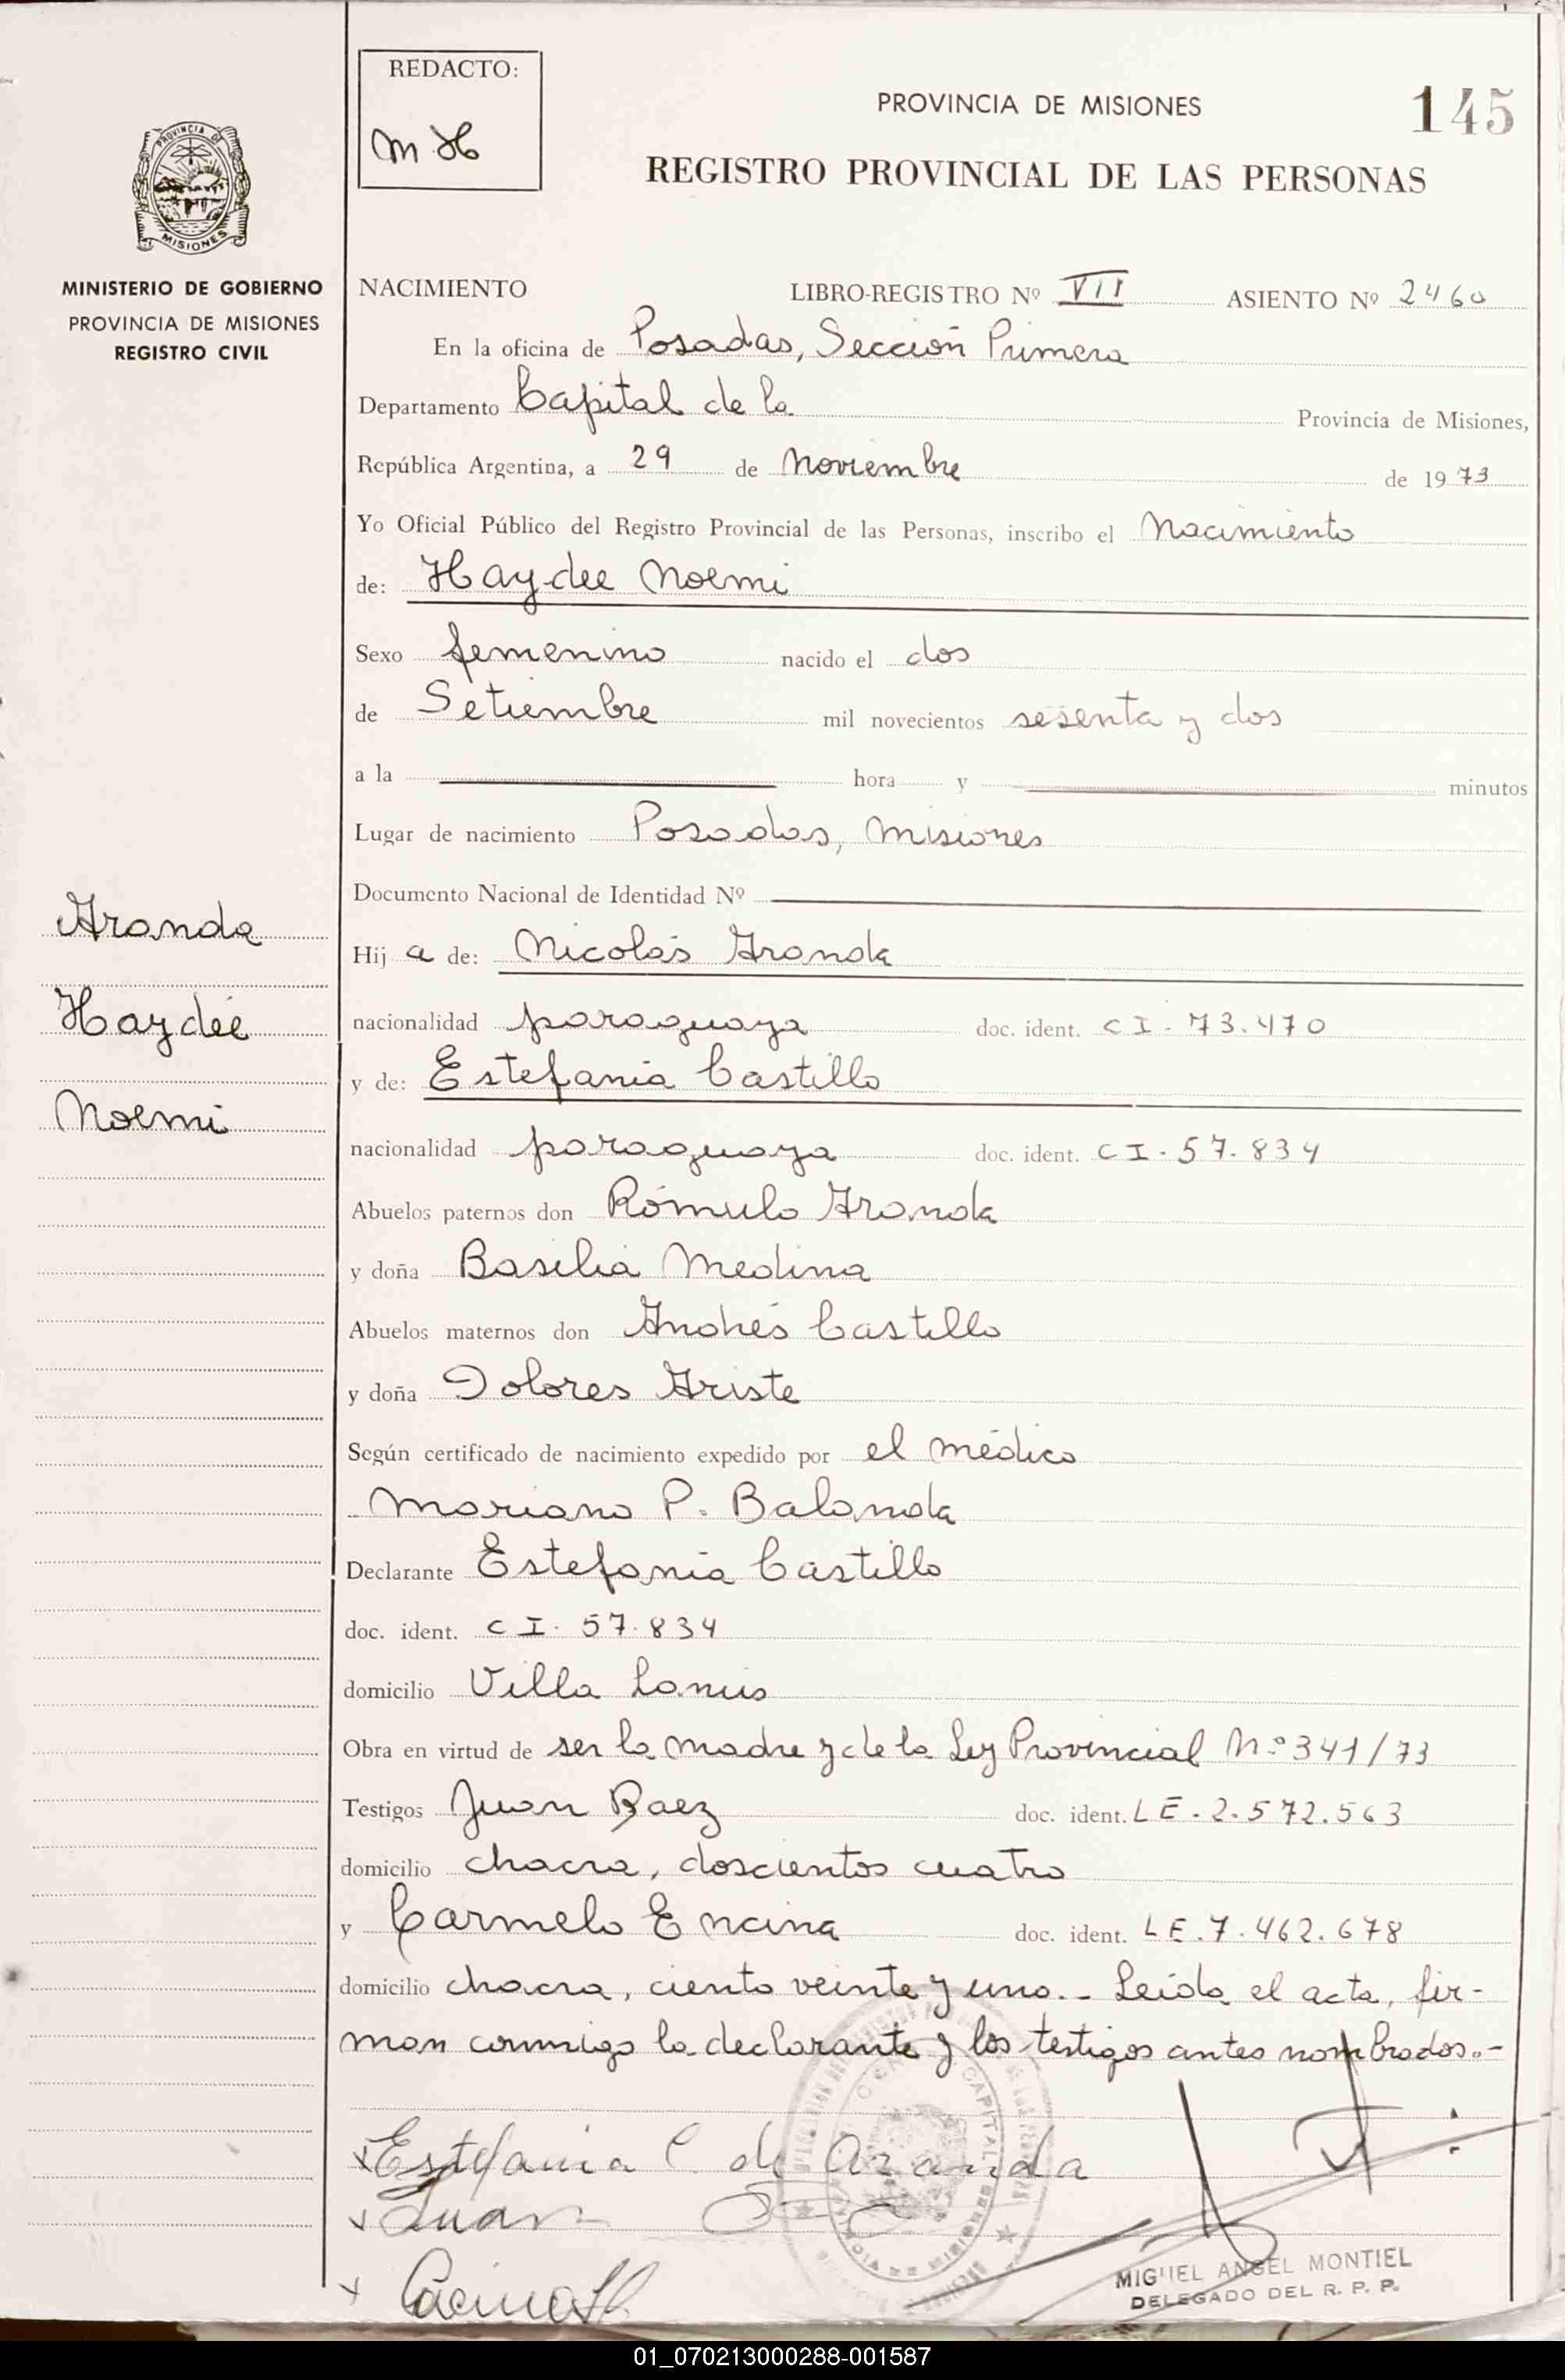 REDACTO:
M H
PROVINCIA DE MISIONES
145
REGISTRO PROVINCIAL DE LAS PERSONAS
PROVINCIA DE
MISIONES
MINISTERIO DE GOBIERNO
PROVINCIA DE MISIONES
REGISTRO CIVIL
NACIMIENTO LIBRO-REGISTRO Nº VII ASIENTO Nº 2460
En la oficina de Posadas, Sección Primera
Departamento Capital de la Provincia de Misiones,
República Argentina, a 29 de Noviembre de 1973
Yo Oficial Público del Registro Provincial de las Personas, inscribo el Nacimiento
de: Haydee Noemi
Sexo femenino nacido el dos
de Setiembre mil novecientos sesenta y dos
a la hora y minutos
Lugar de nacimiento Posadas, Misiones
Documento Nacional de Identidad Nº
Aranda
Haydée
Noemi
Hij a de: Nicolás Aranda
nacionalidad paraguaya doc. ident. CI. 73.470
y de: Estefania Castillo
nacionalidad paraguaya doc. ident. CI. 57.834
Abuelos paternos don Rómulo Aranda
y doña Basilia Medina
Abuelos maternos don Andrés Castillo
y doña Dolores Ariste
Según certificado de nacimiento expedido por el médico
Mariano P. Balanda
Declarante Estefania Castillo
doc. ident. CI. 57.834
domicilio Villa Lanus
Obra en virtud de ser la madre y de la Ley Provincial Nº 341/73
Testigos Juan Baez doc. ident. LE. 2.572.563
domicilio chacra, doscientos cuatro
y Carmelo Encina doc. ident. LE. 7.462.678
domicilio chacra, ciento veinte y uno.- Leída el acta, fir-
man conmigo la declarante y los testigos antes nombrados.-
Estefania C de Aranda
Juan
MIGUEL ANGEL MONTIEL
DELEGADO DEL R. P. P.
01_070213000288-001587